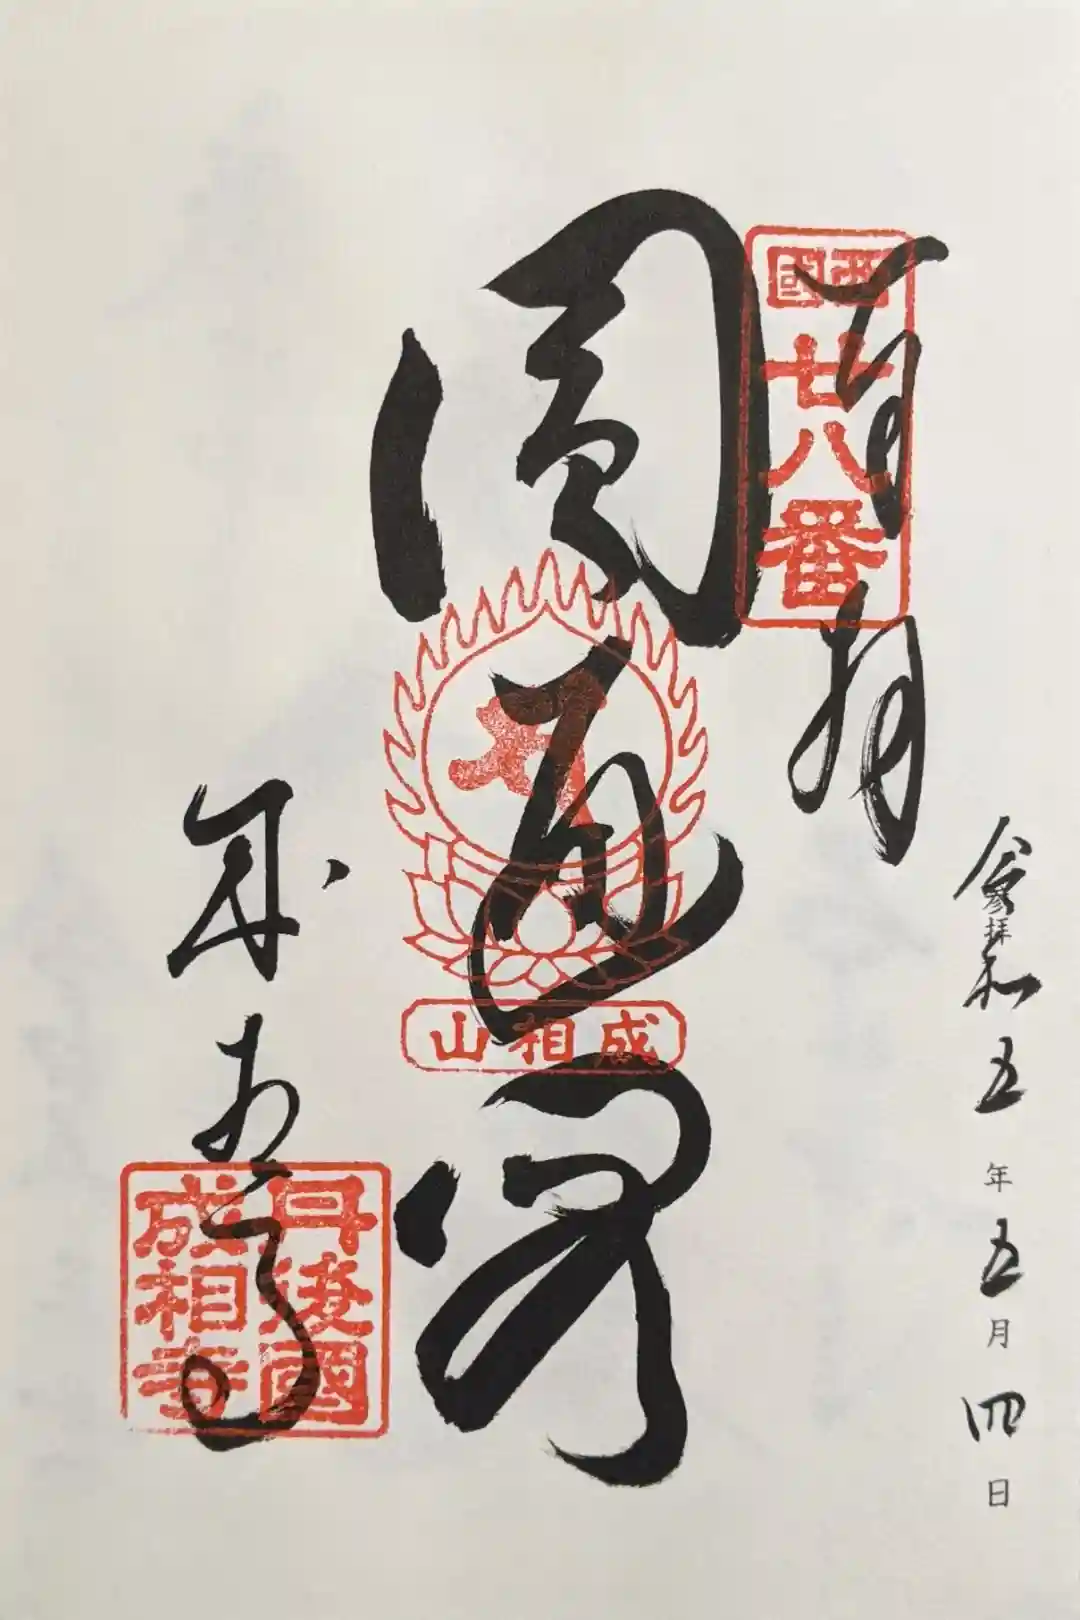 令和五年五月四日
參拝
奉拝
西國
廿八番
圓通閣
成相山
成相寺
丹後國
成相寺